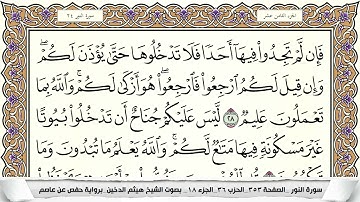 الجزء الثامن عشر
سورة النور ٢٤
فَإِن لَّمْ تَجِدُوا۟ فِيهَآ أَحَدًا فَلَا تَدْخُلُوهَا حَتَّىٰ يُؤْذَنَ لَكُمْ ۖ
وَإِن قِيلَ لَكُمُ ٱرْجِعُوا۟ فَٱرْجِعُوا۟ ۖ هُوَ أَزْكَىٰ لَكُمْ ۚ وَٱللَّهُ بِمَا
تَعْمَلُونَ عَلِيمٌ ٢٨ لَّيْسَ عَلَيْكُمْ جُنَاحٌ أَن تَدْخُلُوا۟ بُيُوتًا
غَيْرَ مَسْكُونَةٍ فِيهَا مَتَـٰعٌ لَّكُمْ ۚ وَٱللَّهُ يَعْلَمُ مَا تُبْدُونَ وَمَا
سورة النور _الصفحة ٣٥٣_ الحزب ٣٦_ الجزء ١٨_ بصوت الشيخ هيثم الدخين_ برواية حفص عن عاصم